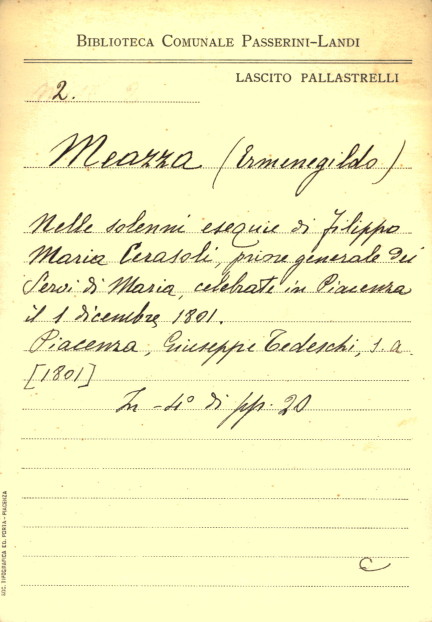 BIBLIOTECA COMUNALE PASSERINI-LANDI
LASCITO PALLASTRELLI
2.
Meazza (Ermenegildo)
Nelle solenni esequie di Filippo
Maria Cerasoli, priore generale dei
Servi di Maria, celebrate in Piacenza
il 1 dicembre 1801.
Piacenza, Giuseppe Tedeschi, s. a.
[1801]
In-4° di pp. 20
C
TIPOGRAFICA ED. PORTA - PIACENZA